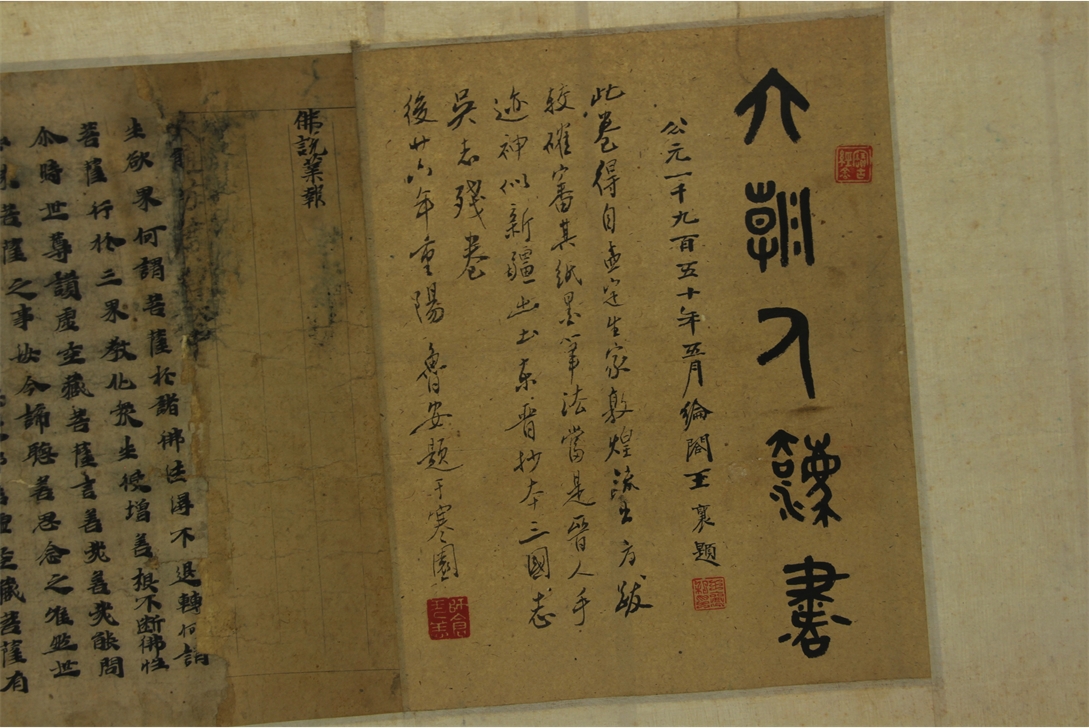 六朝人隸書
公元一千九百五十年五月綸閣王襄題
此卷得自孟定生家敦煌流出方跋
較確審其紙墨筆法當是晉人手
迹神似新疆出土東晉抄本三國志
吳志殘卷
後廿六年重陽魯安題于寒園
佛說業報
生欲界何謂菩薩於諸佛法得不退轉何謂
菩薩行於三界教化衆生授增善根不断佛性
尒時世尊讃虛空藏菩薩言善哉善哉能問
菩薩之事汝今諦聽善思念之唯然世
空藏菩薩有